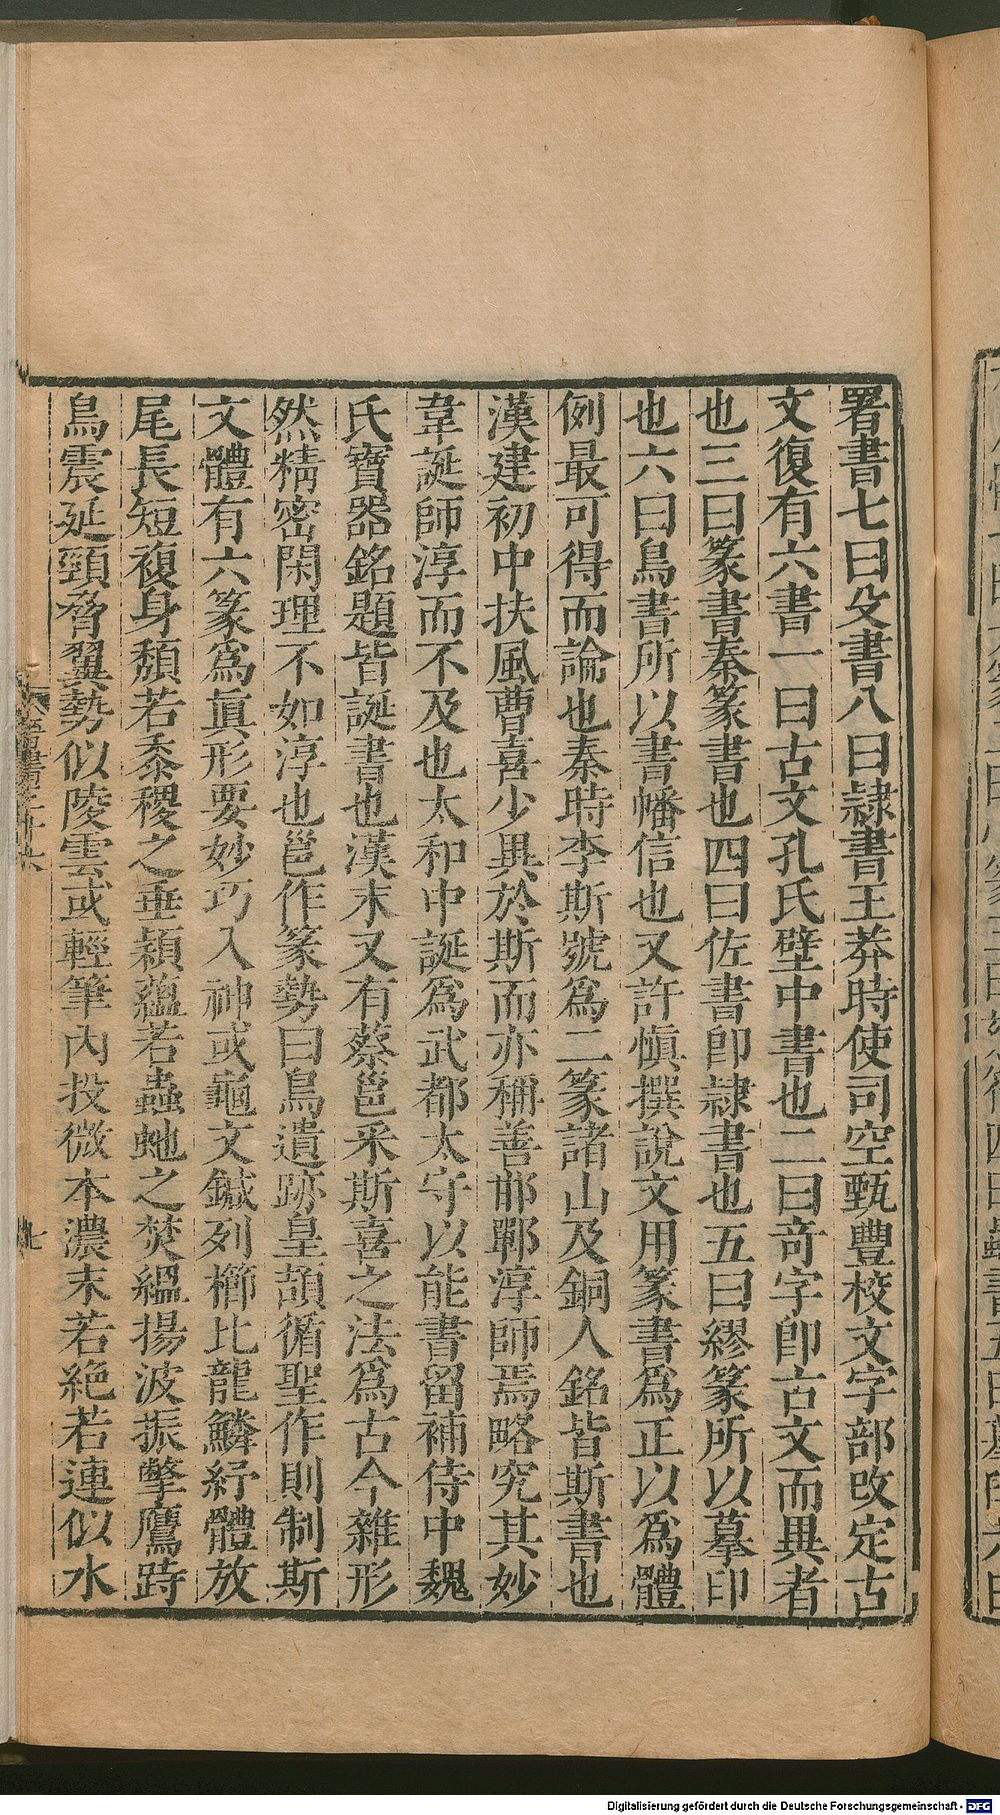 署書七曰殳書八曰隷書王莽時使司空甄豐校文字部改定古
文復有六書一曰古文孔氏壁中書也二曰竒字卽古文而異者
也三曰篆書秦篆書也四曰佐書卽隷書也五曰繆篆所以摹印
也六曰鳥書所以書幡信也又許愼撰說文用篆書爲正以爲體
例最可得而論也秦時李斯號爲二篆諸山及銅人銘皆斯書也
漢建初中扶風曹喜少異於斯而亦稱善邯鄲淳師焉略究其妙
韋誕師淳而不及也太和中誕爲武都太守以能書留補侍中魏
氏寶器銘題皆誕書也漢末又有蔡邕采斯喜之法爲古今雜形
然精密閑理不如淳也邕作篆勢曰鳥遺跡皇頡循聖作則制斯
文體有六篆爲眞形要妙巧入神或龜文鍼列櫛比龍鱗紓體放
尾長短複身頹若黍稷之垂穎蘊若蟲虵之焚縕揚波振擎鷹跱
鳥震延頸脅翼勢似陵雲或輕筆內投微本濃末若絶若連似水
Digitalisierung gefördert durch die Deutsche Forschungsgemeinschaft - DFG